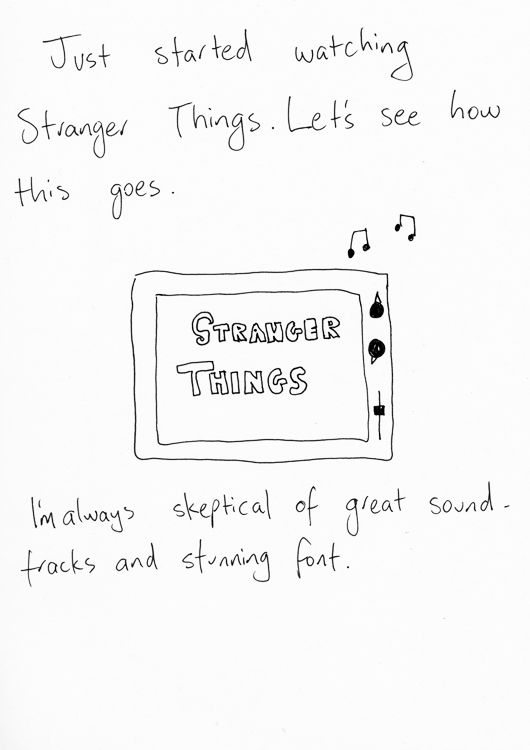 Just started watching
Stranger Things. Let's see how
this goes.
STRANGER
THINGS
I'm always skeptical of great sound-
tracks and stunning font.